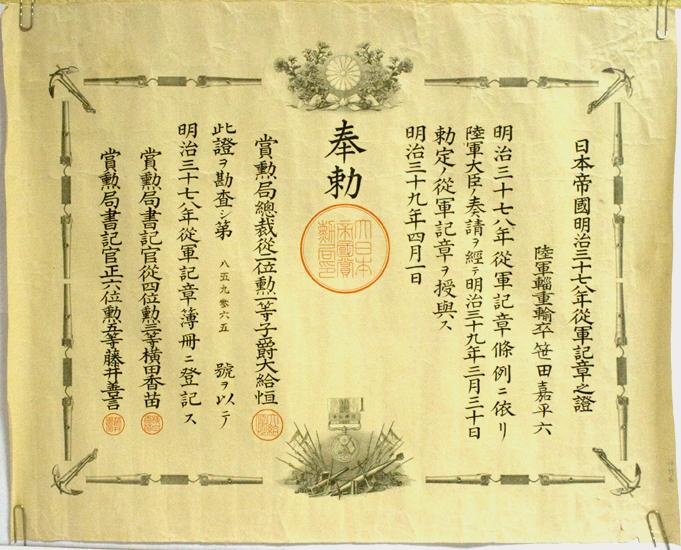 日本帝國明治三十七八年從軍記章之證
陸軍輜重輸卒 笹田嘉平六
明治三十七八年從軍記章條例ニ依リ
陸軍大臣ノ奏請ヲ經テ明治三十九年三月三十日
勅定ノ從軍記章ヲ授與ス
明治三十九年四月一日
奉勅
大日本
帝國賞
勳局印
賞勲局總裁從二位勲一等子爵大給恒
此證ヲ勘査シ第 八五九参六五 號ヲ以テ
明治三十七八年從軍記章簿冊ニ登記ス
賞勲局書記官從四位勲三等横田香苗
賞勲局書記官正六位勲五等藤井善言